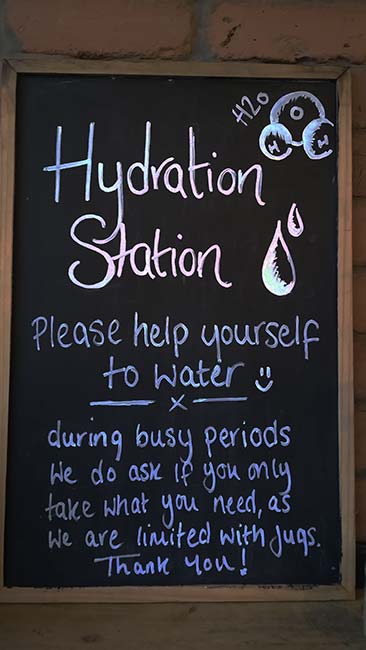 H2O
O
H H
Hydration
Station
Please help yourself
to water :)
x
during busy periods
we do ask if you only
take what you need, as
we are limited with jugs.
Thank you!